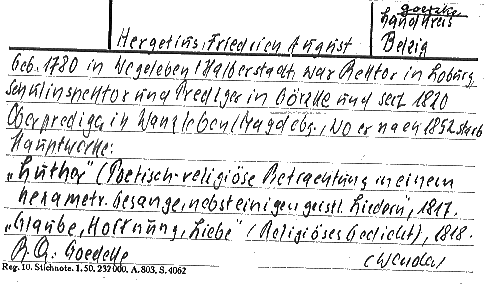 goetzke
Landkreis
Hergetius, Friedrich August Belzig
Geb. 1780 in Wegeleben/Halberstadt, war Rektor in Loburg,
Schulinspektor und Prediger in Görzke und seit 1820
Oberprediger in Wanzleben/Magdebg., wo er nach 1852 starb
Hauptwerke:
„Luther" (Poetisch-religiöse Betrachtung in einem
hexametr. Gesange, nebst einigen geistl. Liedern), 1817.
„Glaube, Hoffnung, Liebe" (Religiöses Gedicht), 1818.
Goedeke
(Wenda)
Reg. 10. Stichnote. 1. 50. 232 000. A. 803. S. 4062